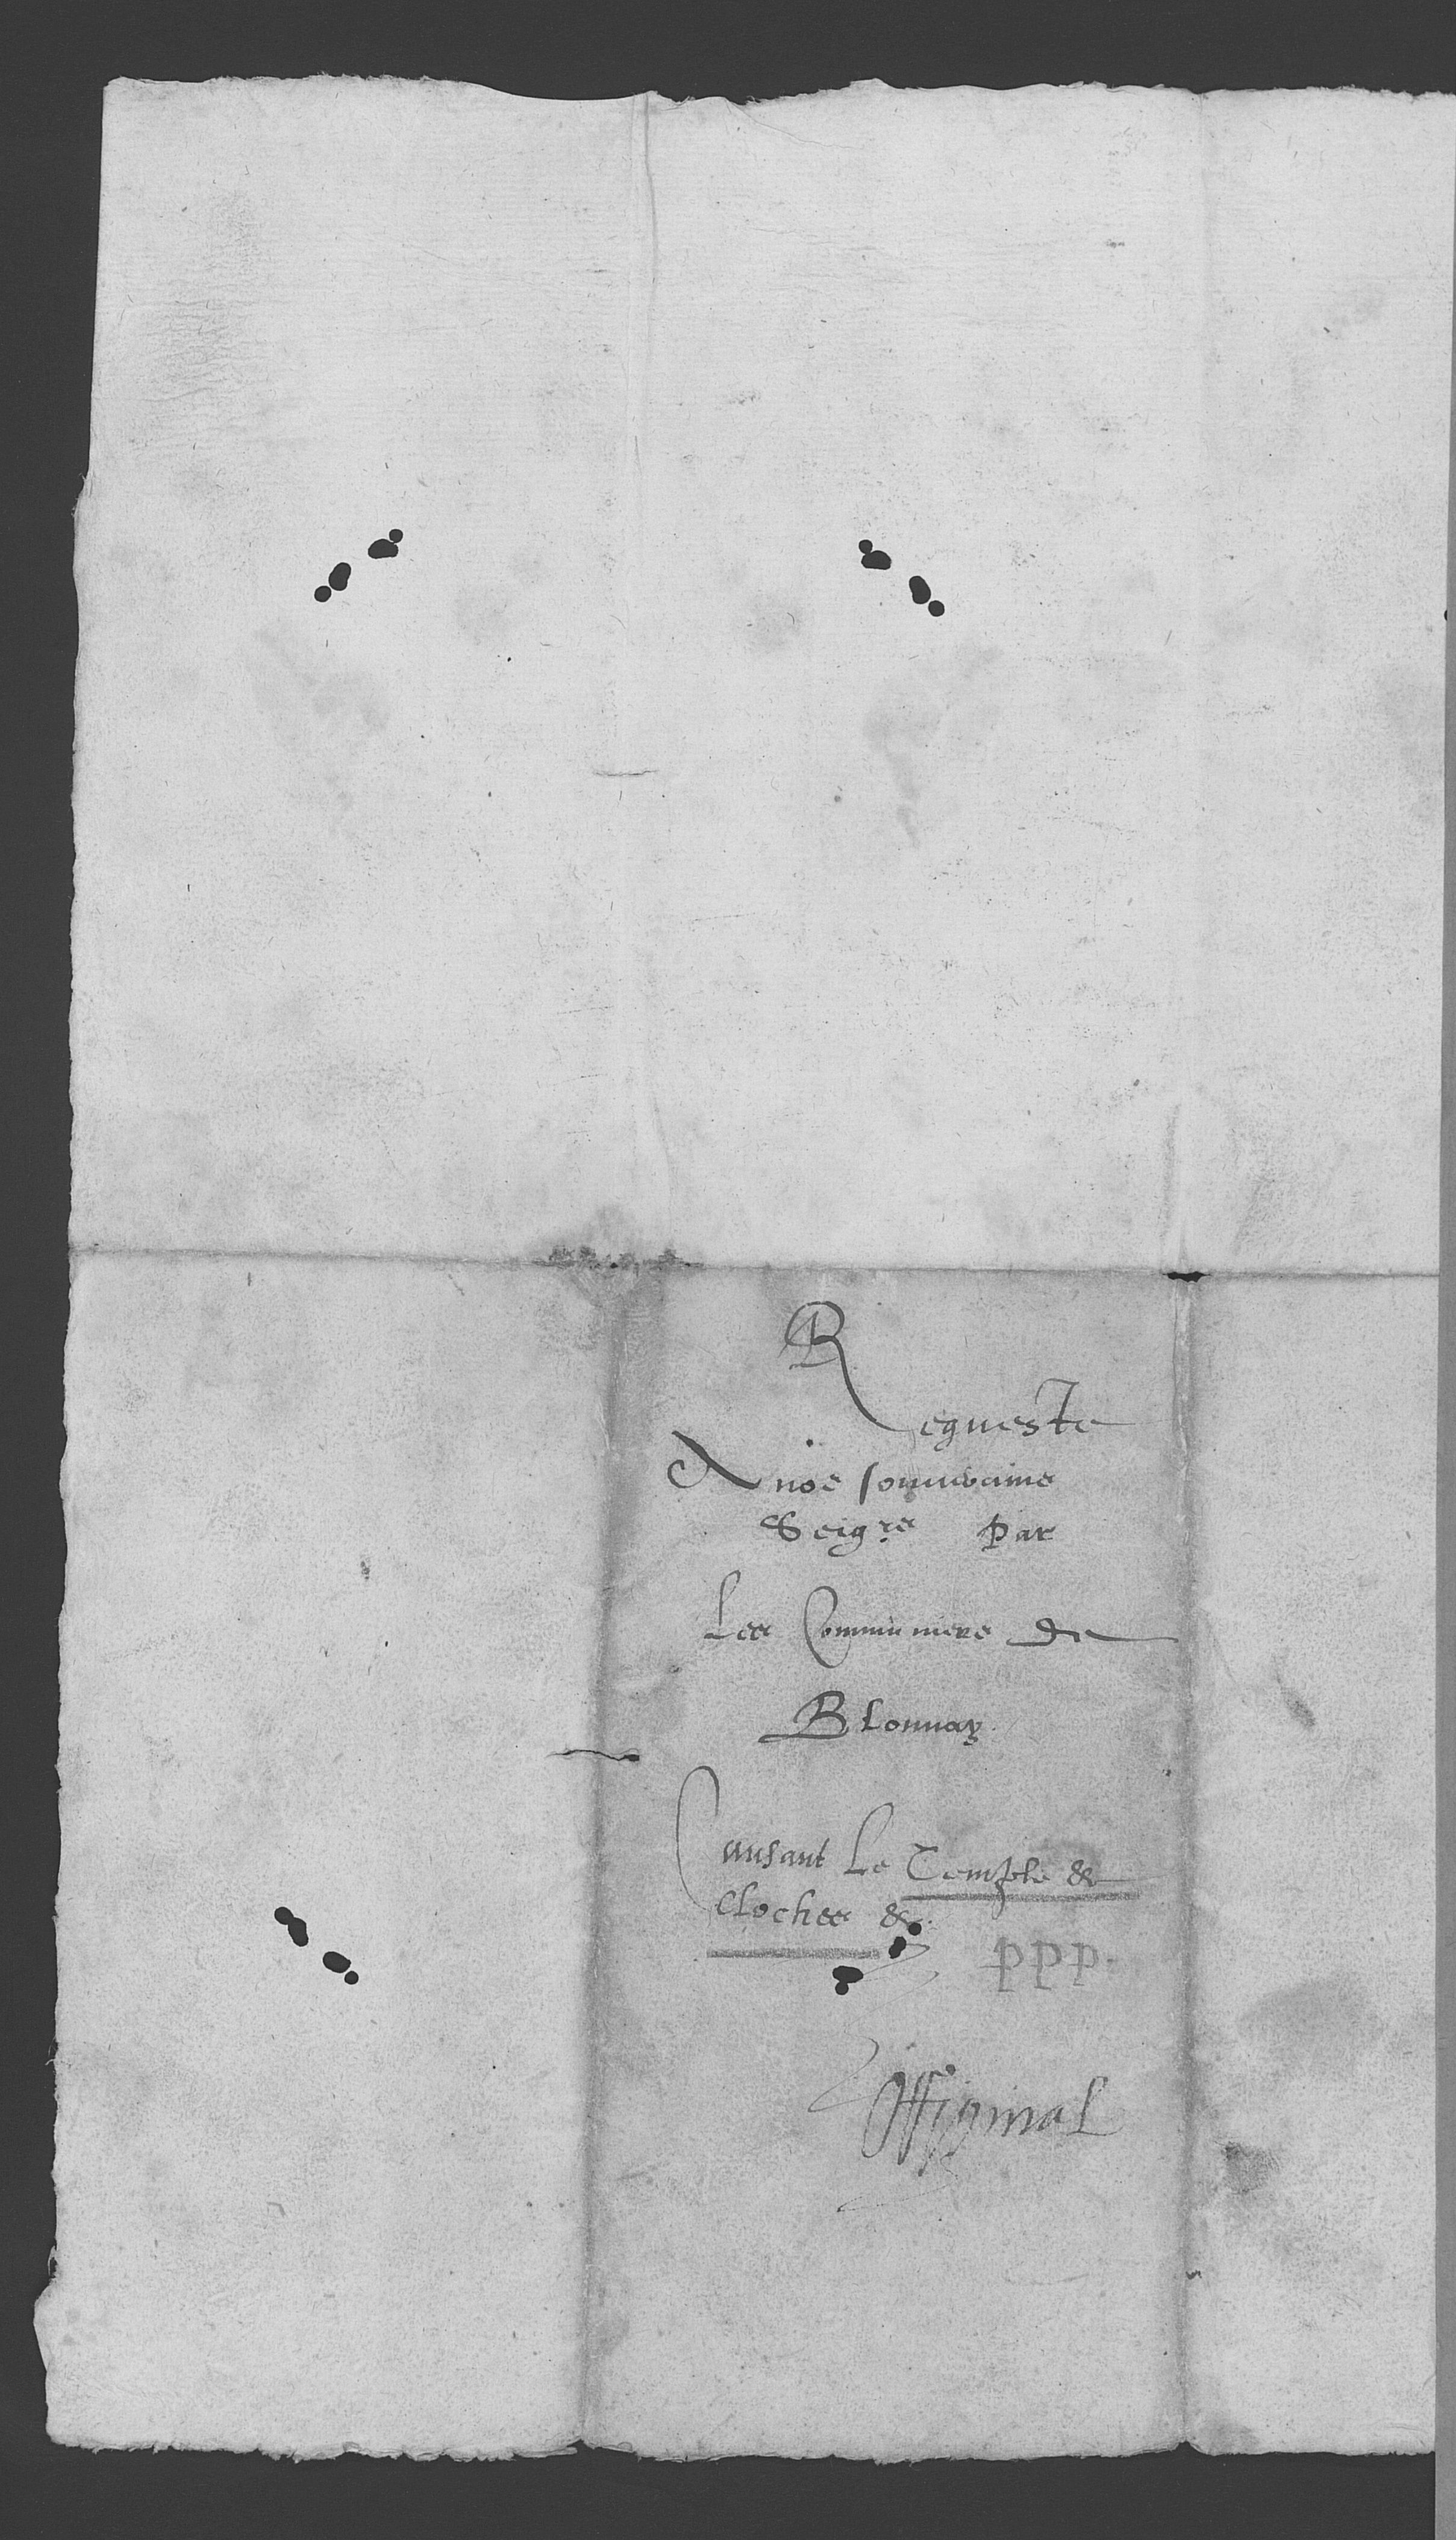 Requeste
A nos souuerains
Seigrs Par
Les Communiers de
Blonnay.
Causant Le Temple &
Cloches &.
ppp.
Original